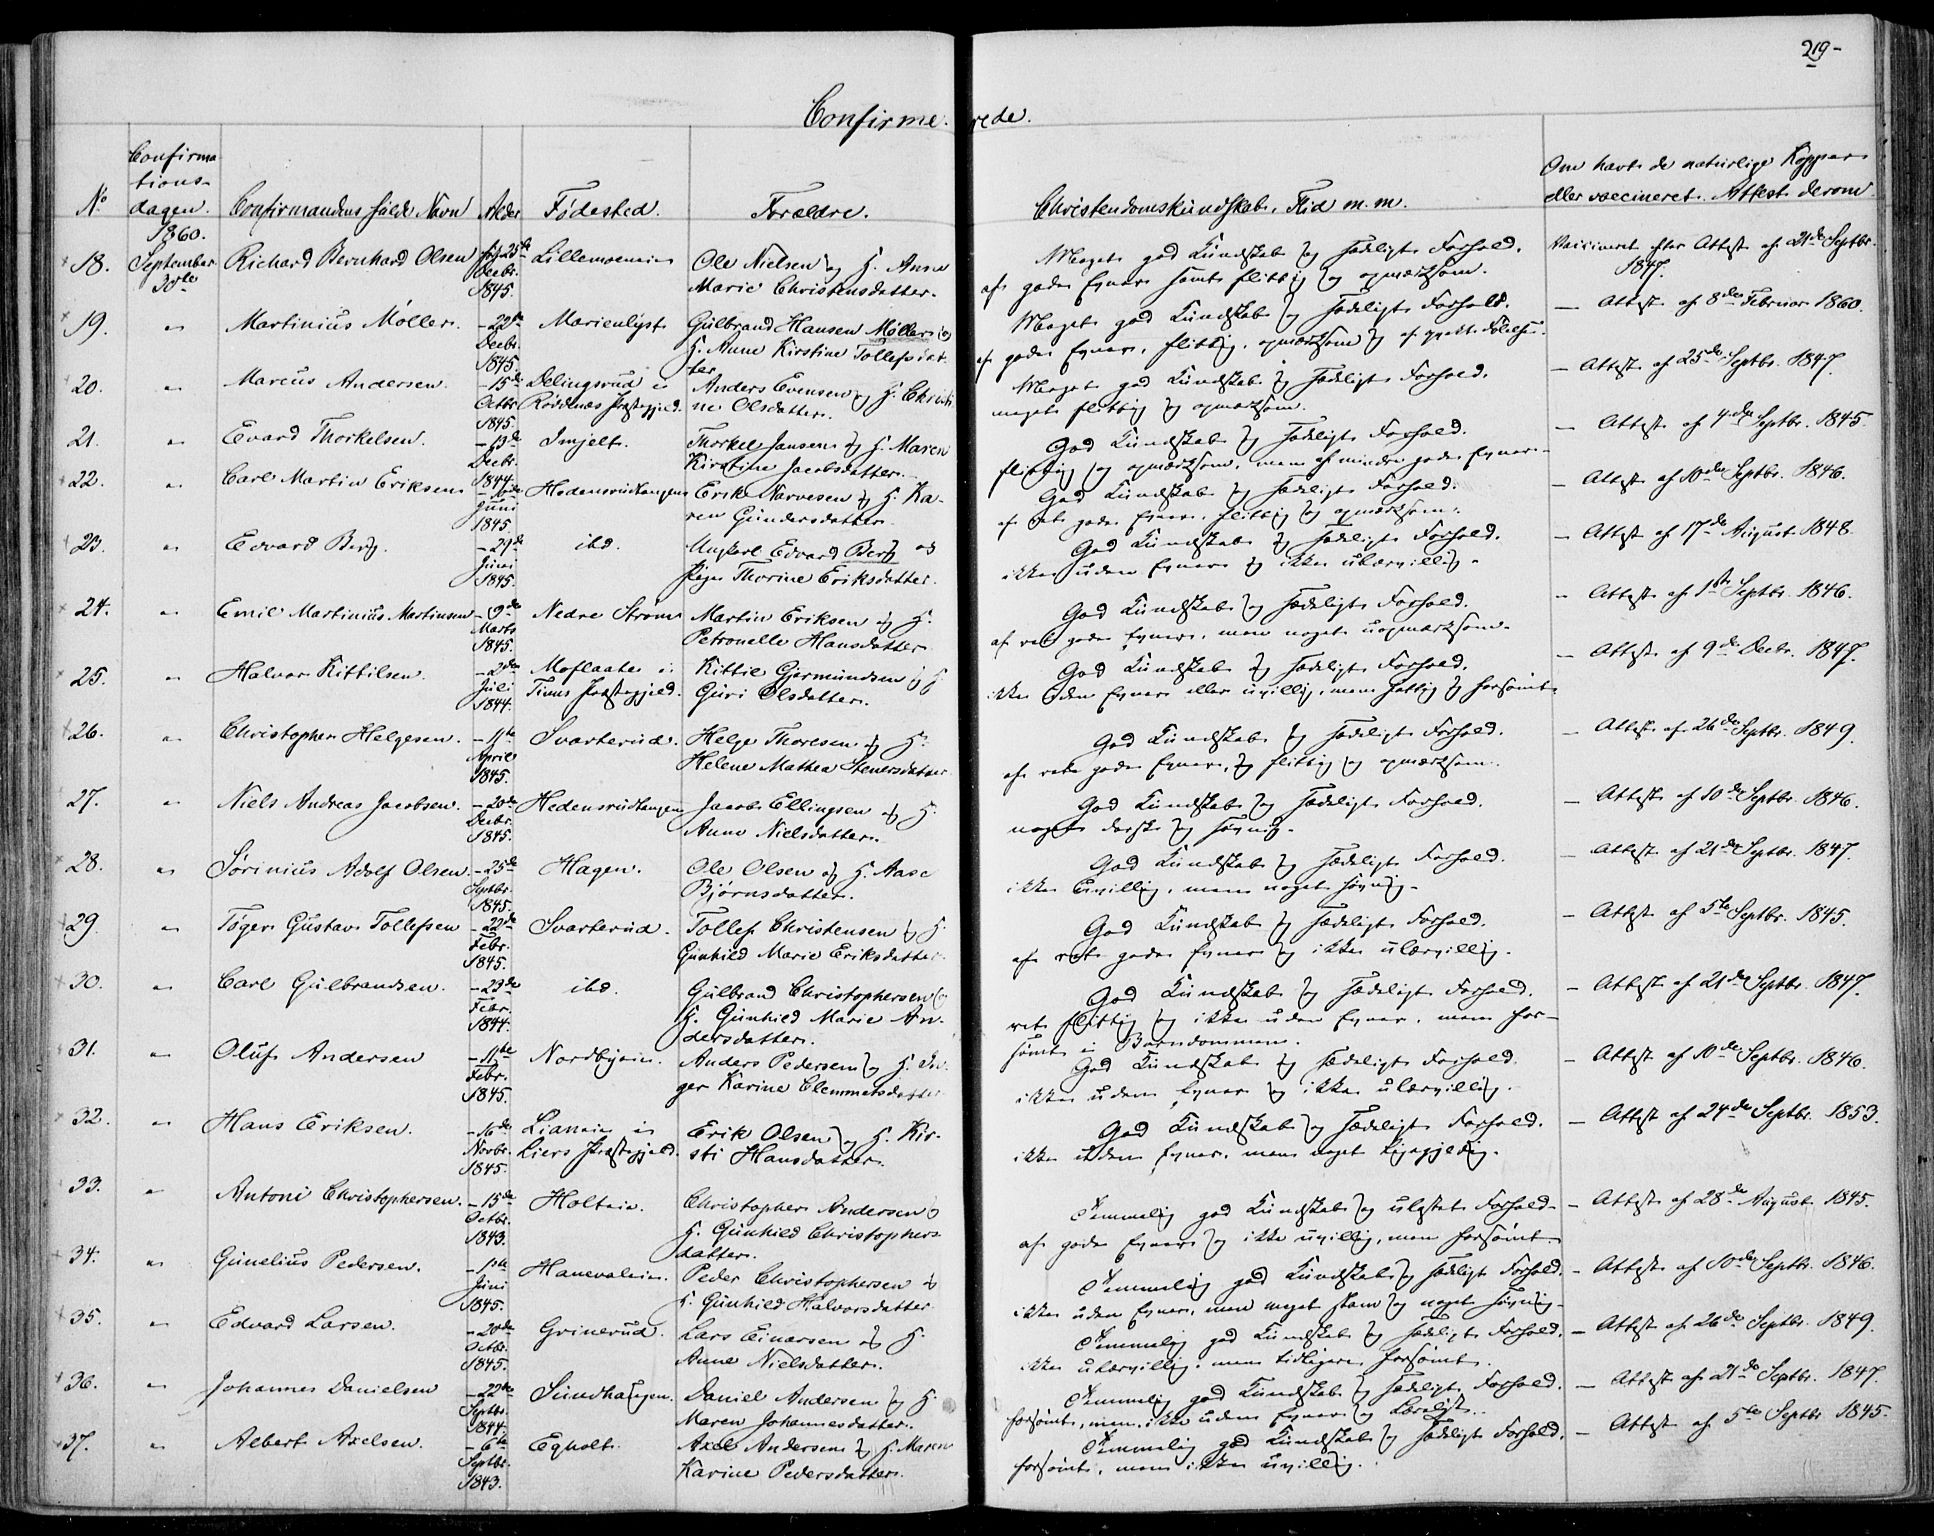 219-
Confirme- rede.
No Confirmationsdagen. Confirmandens fulde Navn Alder Fødested. Forældre. Christendomskundskab, Flid m.m. Om havt de naturlige Kopper
eller vaccineret. Attest derom
1860.
18. September 30te Richard Bernhard Olsen født 25de Decbr. 1845. Lillemoeneie Ole Nielsen og H. Anne Meget god Kundskab og sædeligt Forhold, Vaccineret efter Attest af 21de Septbr. 1847.
Marie Christensdatter. af gode Evner samt flittig og opmærksom.
19. " Martinius Møller. - 22de Decbr. 1845. Marienlyst Gulbrand Hansen Møller og Meget god Kundskab og sædeligt Forhold, - Attest af 8de Februar 1860.
H. Anne Kirstine Tollefsdatter af gode Evner, flittig, opmærksom og af
20. " Marcus Andersen. - 15de Octbr. 1845. Delingsrud i Røddenæs Præstegjeld. Anders Evensen og H. Christi- Meget god Kundskab og sædeligt Forhold, - Attest af 25de Septbr. 1847.
ne Olsdatter. meget flittig og opmærksom.
21. " Evard Thorkelsen. - 13de Decbr. 1844. Imjelt. Thorkel Jensen og H. Maren God Kundskab og sædeligt Forhold. - Attest af 4de Septbr. 1845.
Kirstine Jacobsdatter. flittig og opmærksom, men af mindre gode Evner.
22. " Carl Martin Eriksen - 10de Juni 1845 Hedensrudtangen Erik Narvesen og H. Ka- God Kundskab og sædeligt Forhold. - Attest af 10de Septbr. 1846.
ren Gundersdatter. af ret gode Evner, flittig og opmærksom.
23. " Edvard Berg. - 29de Juni 1845. ibd. Ungkarl Edvard Berg og God Kundskab og sædeligt Forhold. - Attest af 17de August 1848.
Pige Thorine Eriksdatter. ikke uden Evner og ikke ulærvillig.
24. " Emil Martinius Martinsen - 9de Marts 1845. Nedre Strøm Martin Eriksen og H. God Kundskab og sædeligt Forhold. - Attest af 1ste Septbr. 1846.
Petronelle Hansdatter af ret gode Evner, men noget uopmærksom.
25. " Halvor Kittilsen. - 2den Juli 1844. Moflaate i Tinns Præstegjeld. Kittil Gjermundsen og H. God Kundskab og sædeligt Forhold. - Attest af 9de Decbr. 1847.
Guri Olsdatter. ikke uden Evner eller uvillig, men fattig og forsømt.
26. " Christopher Helgesen. - 11te April 1845. Svarterud. Helge Thoresen og H. God Kundskab og sædeligt Forhold. - Attest af 26de Septbr. 1849.
Helene Mathea Stenersdatter af ret gode Evner, og flittig og opmærksom.
27. " Niels Andreas Jacobsen. - 20de Decbr. 1845. Hedensrudtangen Jacob Ellingsen og H. God Kundskab og sædeligt Forhold. - Attest af 10de Septbr. 1846.
Anne Nielsdatter. noget dorsk og søvnig.
28. " Sørinius Adolf Olsen. - 25de Septbr. 1845. Hagen. Ole Olsen og H. Aase God Kundskab og sædeligt Forhold. - Attest af 21de Septbr. 1847.
Bjørnsdatter. ikke uvillig, men noget søvnig.
29. " Tøger Gustav Tollefsen - 22de Febr. 1845. Svarterud. Tollef Christensen og H. God Kundskab og sædeligt Forhold. - Attest af 5te Septbr. 1845.
Gunhild Marie Eriksdatter. af ret gode Evner og ikke ulærvillig.
30. " Carl Gulbrandsen. - 23de Febr. 1844. ibd. Gulbrand Christophersen og God Kundskab og sædeligt Forhold. - Attest af 21de Septbr. 1847.
H. Gunhild Marie An- ret flittig og ikke uden Evner, men for-
dersdatter. sømt i Barndommen.
31. " Oluf Andersen - 11te Febr. 1845. Nordbyeie. Anders Pedersen og H. In- God Kundskab og sædeligt Forhold. - Attest af 10de Septbr. 1846.
ger Karine Clemmetsdatter ikke uden Evner og ikke ulærvillig.
32. " Hans Eriksen. - 16de Novbr. 1845. Lianeie i Liers Præstegjeld. Erik Olsen og H. Kir- God Kundskab og sædeligt Forhold. - Attest af 24de Septbr. 1853.
sti Hansdatter. ikke uden Evner, men noget ligegyldig.
33. " Antoni Christophersen. - 15de Octbr. 1843. Holteie. Christopher Andersen og Temmelig god Kundskab og ulastet Forhold - Attest af 28de August 1845.
H. Gunhild Christophers- af gode Evner og ikke uvillig, men forsømt.
datter.
34. " Gunelius Pedersen. - 1ste Juni 1845. Hanevoleie. Peder Christophersen og Temmelig god Kundskab og sædeligt Forhold. - Attest af 10de Septbr. 1846.
H. Gunhild Halvorsdatter ikke uden Evner, men meget og noget søvnig.
35. " Edvard Larsen. - 20de Octbr. 1845. Grinerud. Lars Einarsen og H. Temmelig god Kundskab og sædeligt Forhold. - Attest af 26de Septbr. 1849.
Anne Nielsdatter. ikke ulærvillig, men tidligere forsømt.
36. " Johannes Danielsen - 22de Septbr. 1844. Sundhaugen. Daniel Andersen og H. Temmelig god Kundskab og sædeligt Forhold. - Attest af 21de Septbr. 1847.
Maren Johannesdatter. forsømt, men ikke uden Evner og Lærelyst.
37. " Albert Axelsen. - 6te Septbr. 1843. Egholt. Axel Andersen og H. Maren Temmelig god Kundskab og sædeligt Forhold. - Attest af 5te Septbr. 1845.
Karine Pedersdatter. forsømt, men ikke uvillig.